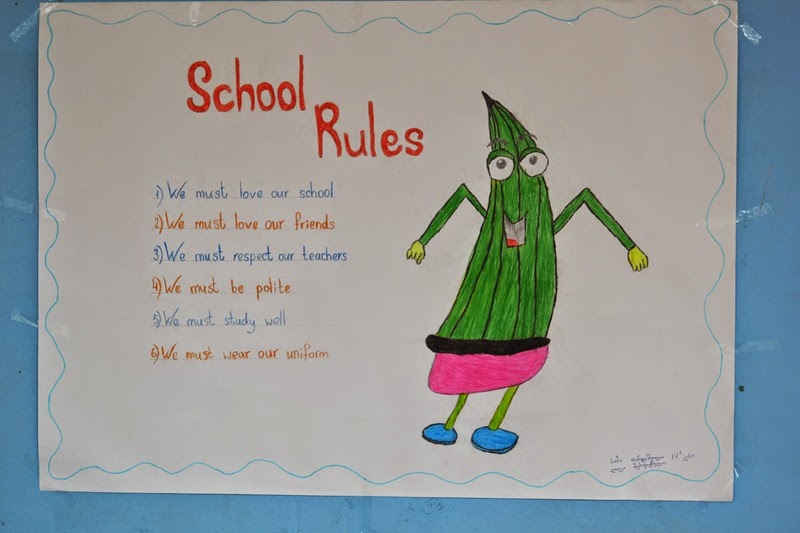 School
Rules
1) We must love our school
2) We must love our friends
3) We must respect our teachers
4) We must be polite
5) We must study well
6) We must wear our uniform